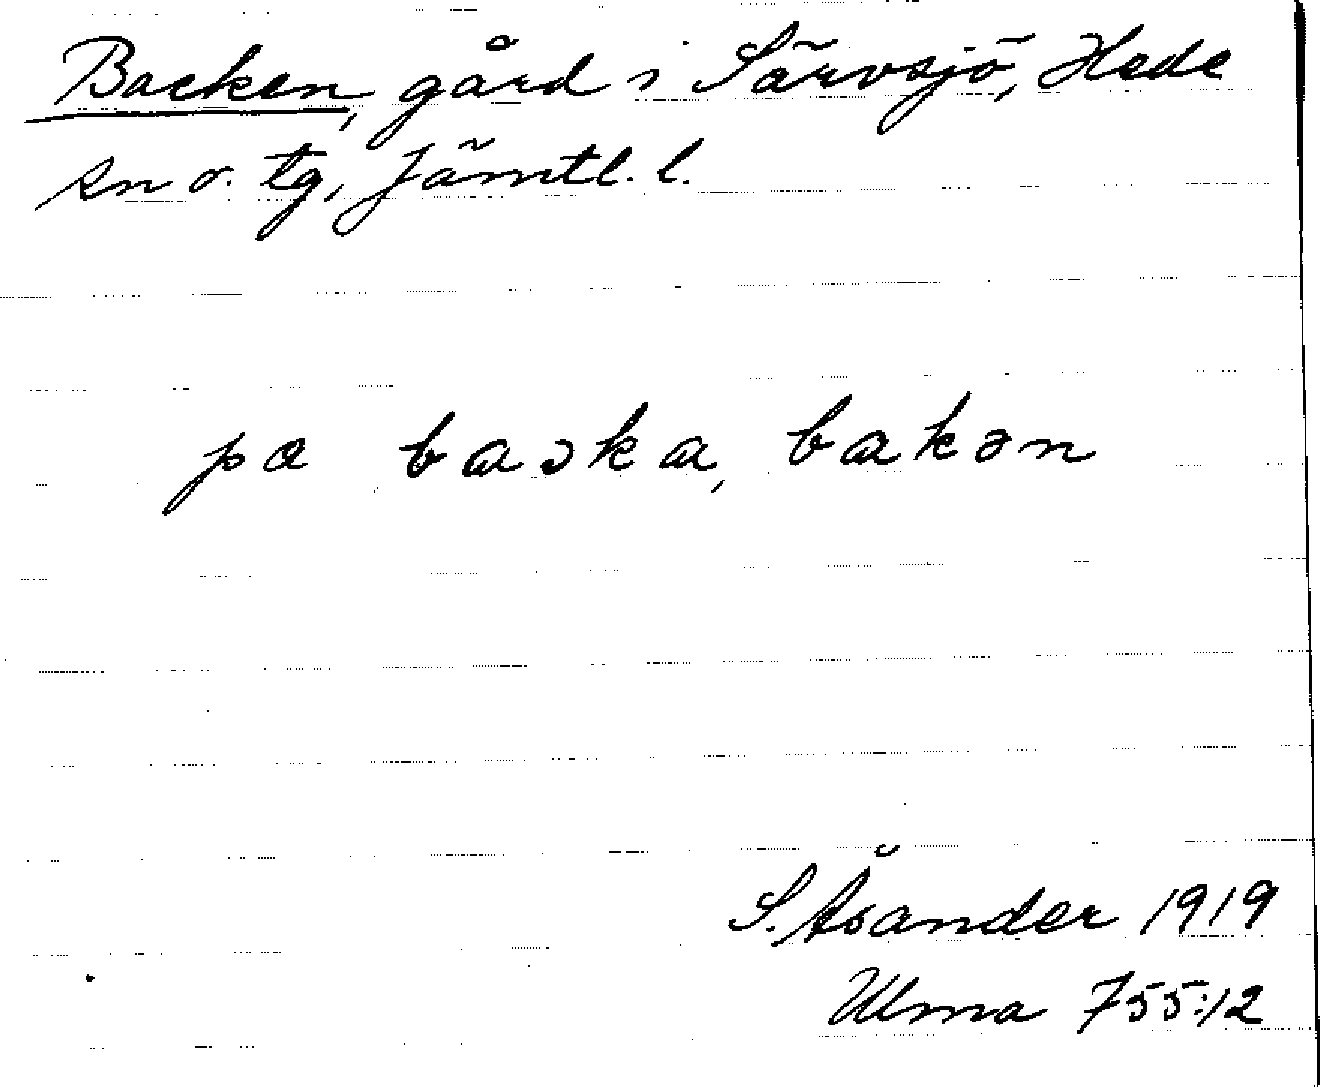 Backen, gård i Särvsjö, Hede
sn o. tg, Jämtl. l.
pa baɔka, bakən
S. Åsander 1919
Ulma 755:12